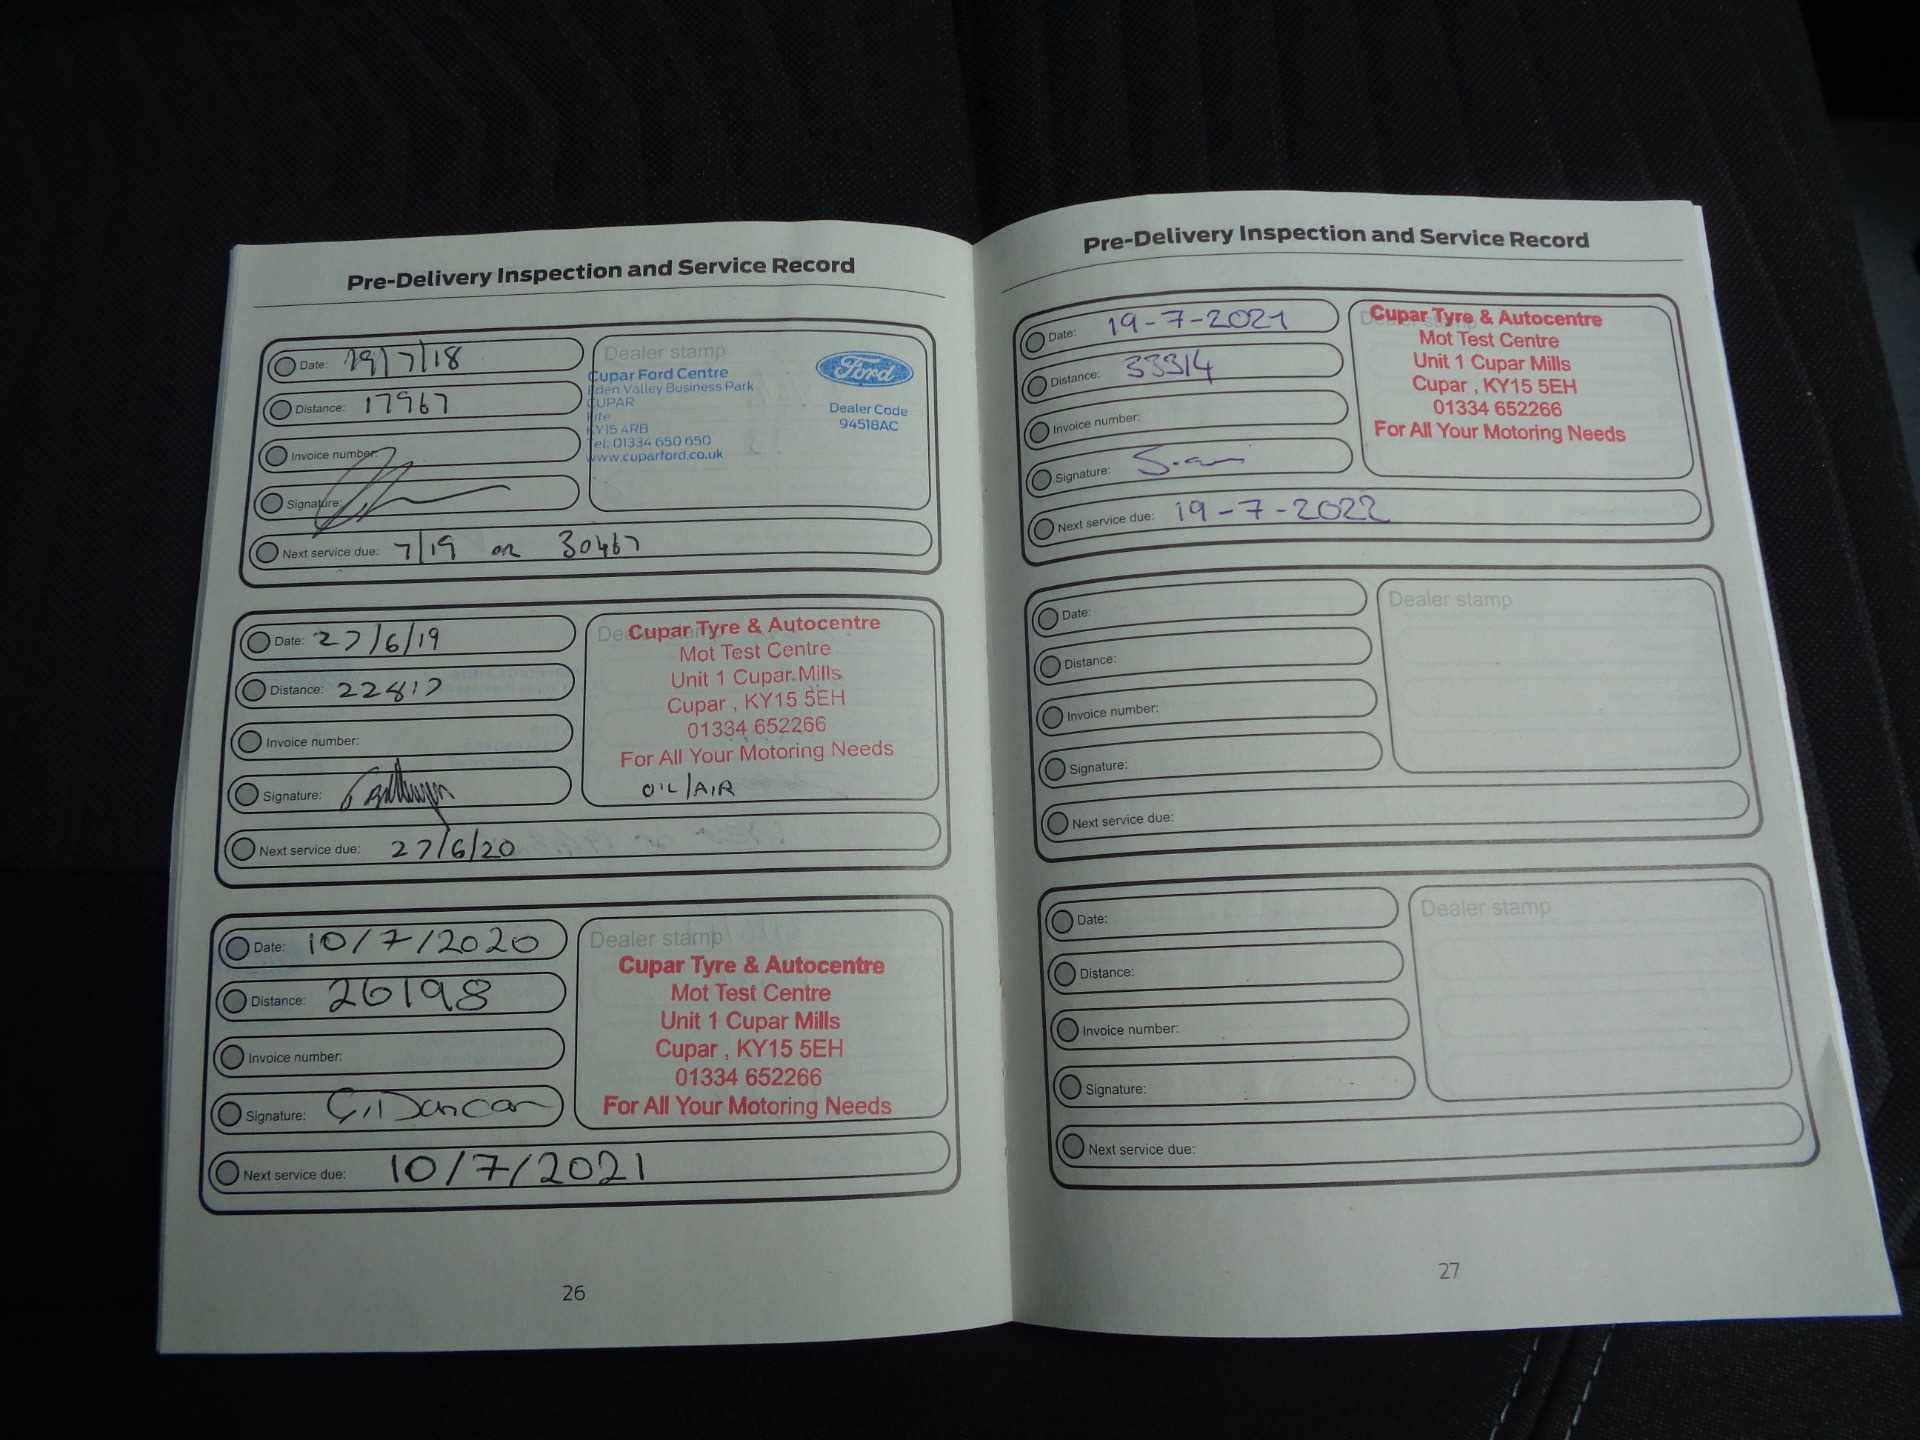 Pre-Delivery Inspection and Service Record
Date: 19/7/18
Distance: 17967
Invoice number:
Signature:
Next service due: 7/19 or 30467
Dealer stamp
Cupar Ford Centre
Eden Valley Business Park
CUPAR
Fife
KY15 4RB
Tel: 01334 650 650
www.cuparford.co.uk
Ford
Dealer Code
94518AC
Date: 27/6/19
Distance: 22817
Invoice number:
Signature:
Next service due: 27/6/20
Dealer stamp
Cupar Tyre & Autocentre
Mot Test Centre
Unit 1 Cupar Mills
Cupar , KY15 5EH
01334 652266
For All Your Motoring Needs
OIL/AIR
Date: 10/7/2020
Distance: 26198
Invoice number:
Signature: G.Duncan
Next service due: 10/7/2021
Dealer stamp
Cupar Tyre & Autocentre
Mot Test Centre
Unit 1 Cupar Mills
Cupar , KY15 5EH
01334 652266
For All Your Motoring Needs
26
Pre-Delivery Inspection and Service Record
Date: 19-7-2021
Distance: 33314
Invoice number:
Signature:
Next service due: 19-7-2022
Dealer stamp
Cupar Tyre & Autocentre
Mot Test Centre
Unit 1 Cupar Mills
Cupar , KY15 5EH
01334 652266
For All Your Motoring Needs
Date:
Distance:
Invoice number:
Signature:
Next service due:
Dealer stamp
Date:
Distance:
Invoice number:
Signature:
Next service due:
Dealer stamp
27